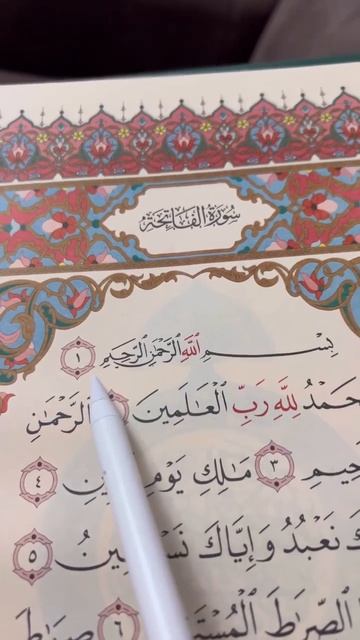 سُورَةُ الفَاتِحَةِ
بِسْــــمِ اللَّهِ الرَّحْمَٰنِ الرَّحِيمِ ١
حَمْدُ لِلَّهِ رَبِّ الْعَالَمِينَ الرَّحْمَٰنِ
حِيمِ ٣ مَالِكِ يَوْمِ ينِ ٤
كَ نَعْبُدُ وَإِيَّاكَ نَسْ ينُ ٥
ا الصِّرَاطَ الْمُسْتَقِ ٦ صِرَاطَ